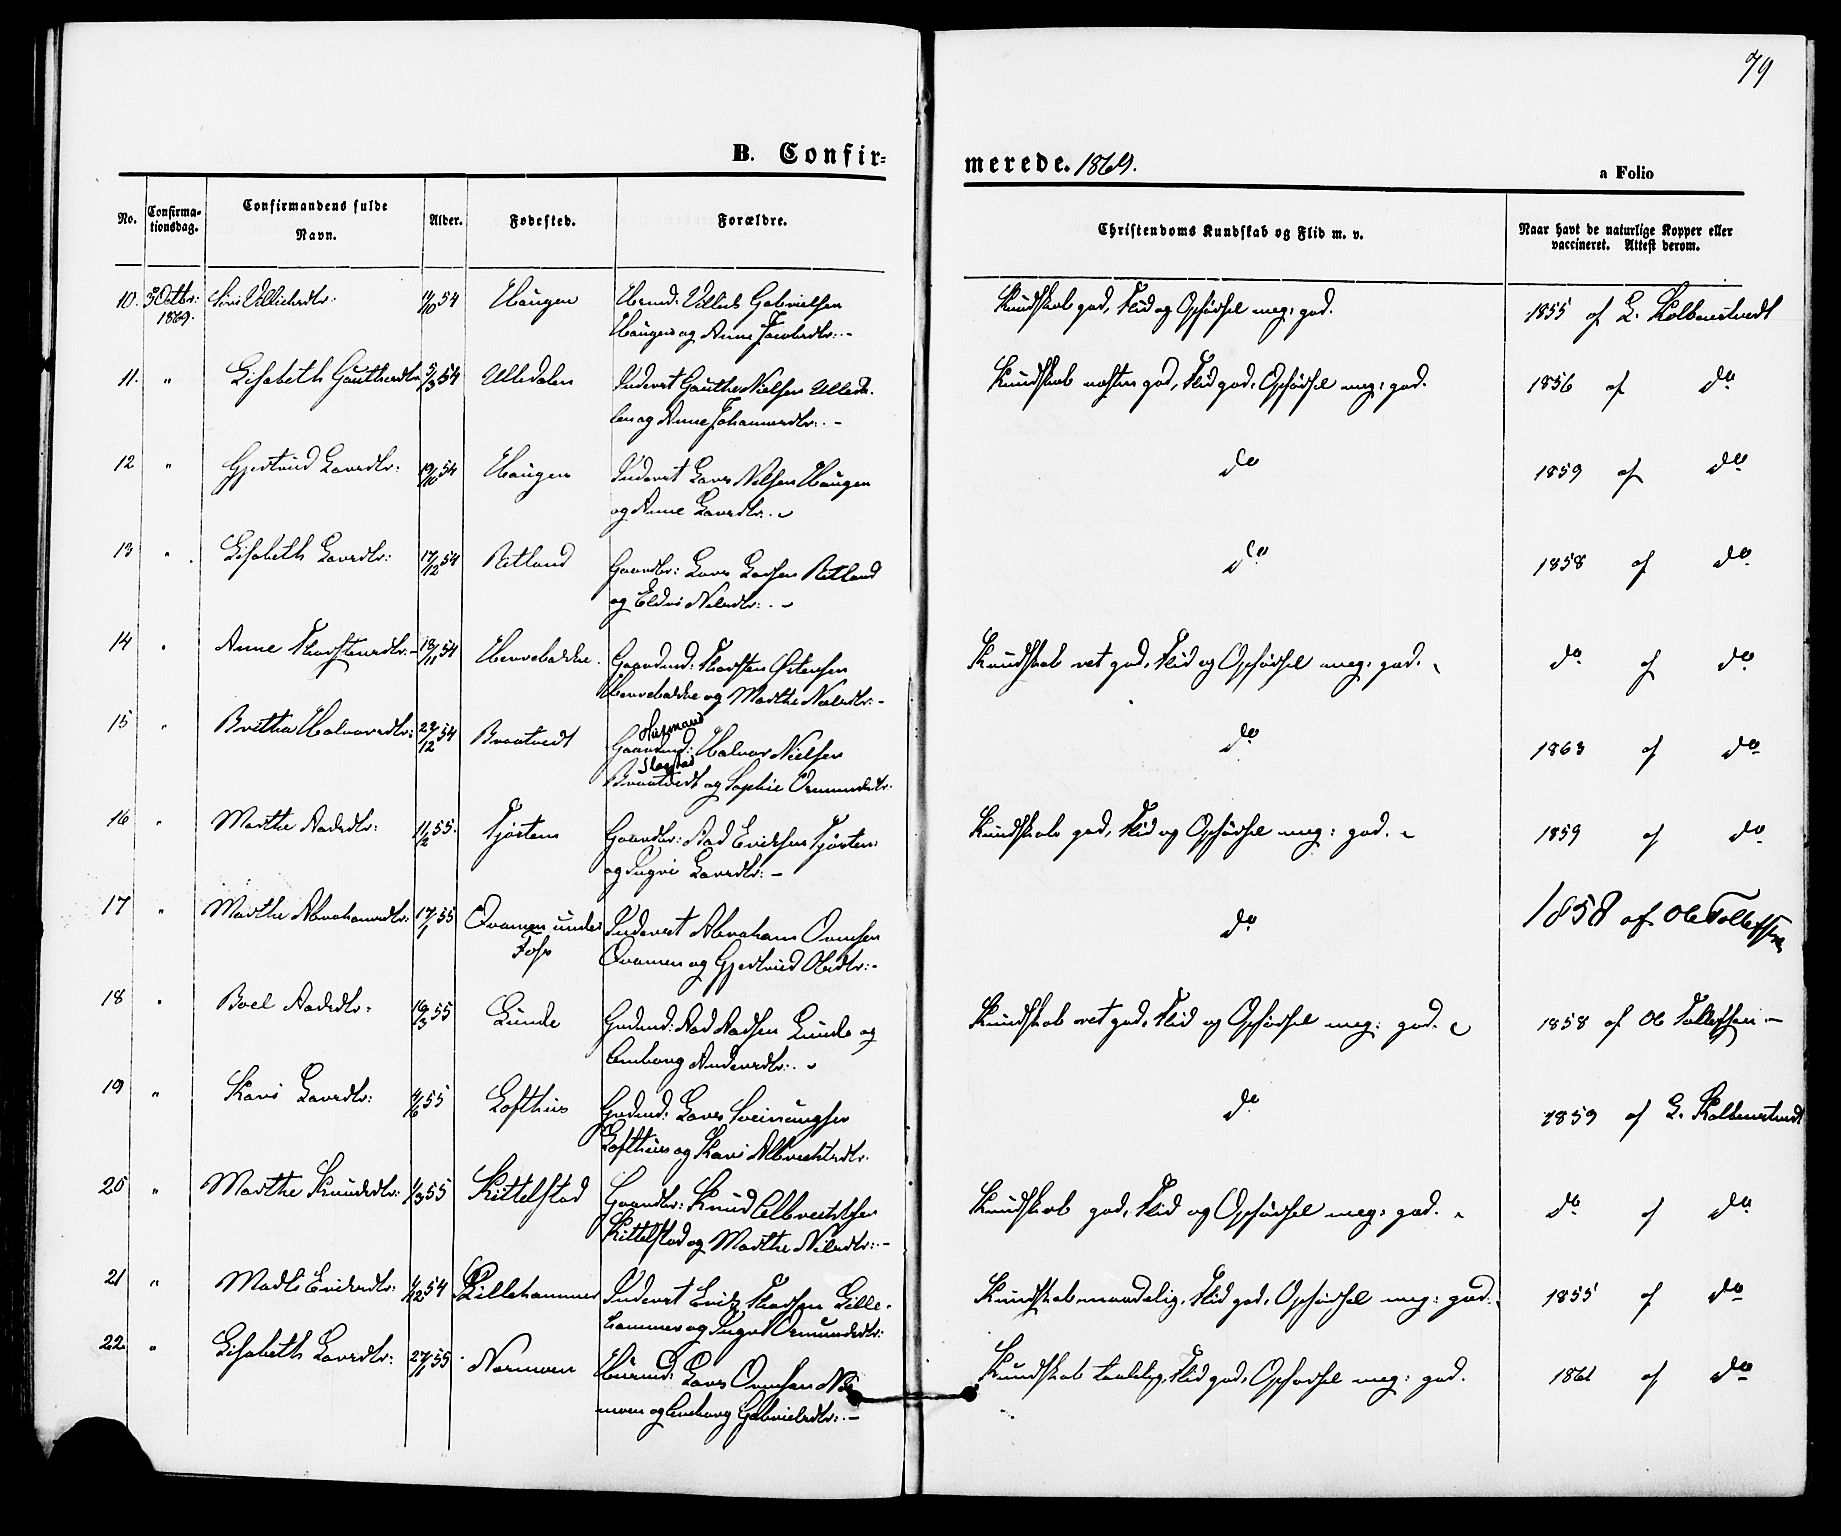 79
B. Confir-
merede. 1869.
a Folio
No.
Confirma-
tionsdag.
Confirmandens fulde
Navn.
Alder.
Fødested.
Forældre.
Christendoms Kundskab og Flid m. v.
Naar havt de naturlige Kopper eller
vaccineret. Attest derom.
10. 3 Octbr: Siri Villiksdtr: 54 Haugen Husmd: Villik Gabrielsen Kundskab god, Flid og Opførsel meg: god. 1855 af L. Kolbenstvedt
1869. Haugen og Anne Jacobsdtr: -
11. " Lisabeth Gauthesdtr 54 Ulledalen Inderst Gauthe Nielsen Ulleda- Kundskab næsten god, Flid god, Opførsel meg: god. 1856 af do
len og Anne Johannesdtr: -
12 " Gjertrud Larsdtr: 19/10 54 Haugen Inderst Lars Nilsen Haugen do 1859 af do
og Anne Larsdtr: -
13 " Lisabeth Larsdtr: 17/12 54 Ritland Gaardbr: Lars Larsen Ritland do 1858 af do
og Eldri Nilsdtr: -
14 " Anne Thorstensdtr: - 18/11 54 Herrebakke. Gaardmd: Thorsten Østensen Kundskab ret god, Flid og Opførsel meg: god. do af do
Herrebakke og Marthe Nilsdtr: -
15 " Brettha Halvorsdtr: 22/12 54 Braatvedt Husmand
Gaardmd: Halvor Nielsen do 1863 af do
Braatvedt og Sophie Osmundsdtr.
16 " Marthe Aadsdtr: 11/2 55. Tjøsten Gaardbr: Aad Eriksen Tjøsten Kundskab god, Flid og Opførsel meg: god. 1859 af do
og Ingri Larsdtr: -
17 " Marthe Abrahamsdtr: 17/1 55 Ovamen under Inderst Abraham Ormsen do 1858 af Ole Tollefsen
Foss Ovamen og Gjertrud Olsdtr: -
18 " Boel Aadsdtr: 16/3 55 Lunde Grdmd: Aad Aadsen Lunde og Kundskab ret god, Flid og Opførsel meg: god. 1858 af Ole Tollefsen -
Anborg Andersdtr: -
19 " Kari Larsdtr: 4/6 55 Lofthus Grdmd: Lars Sveinungsen do 1859 af L. Kolbenstvedt
Lofthus og Kari Albrechtsdtr.
20 " Marthe Knudsdtr: 1/3 55 Kittelstad Gaardbr: Knud Albrechtsen Kundskab god, Flid og Opførsel meg: god. do af do
Kittelstad og Marthe Nilsdtr: -
21 " Madli Eriksdtr: 54 Lillehammer Inderst Erik Thorsen Lille- Kundskab maadelig, Flid god, Opførsel meg: god. 1855 af do
hammer og Inger Osmundsdtr:
22 " Lisabeth Larsdtr: 55 Normoen Husmd: Lars Ormsen Nor Kundskab taalelig, Flid god, Opførsel meg: god. 1861 af do
moen og Anborg Gabrielsdtr: -